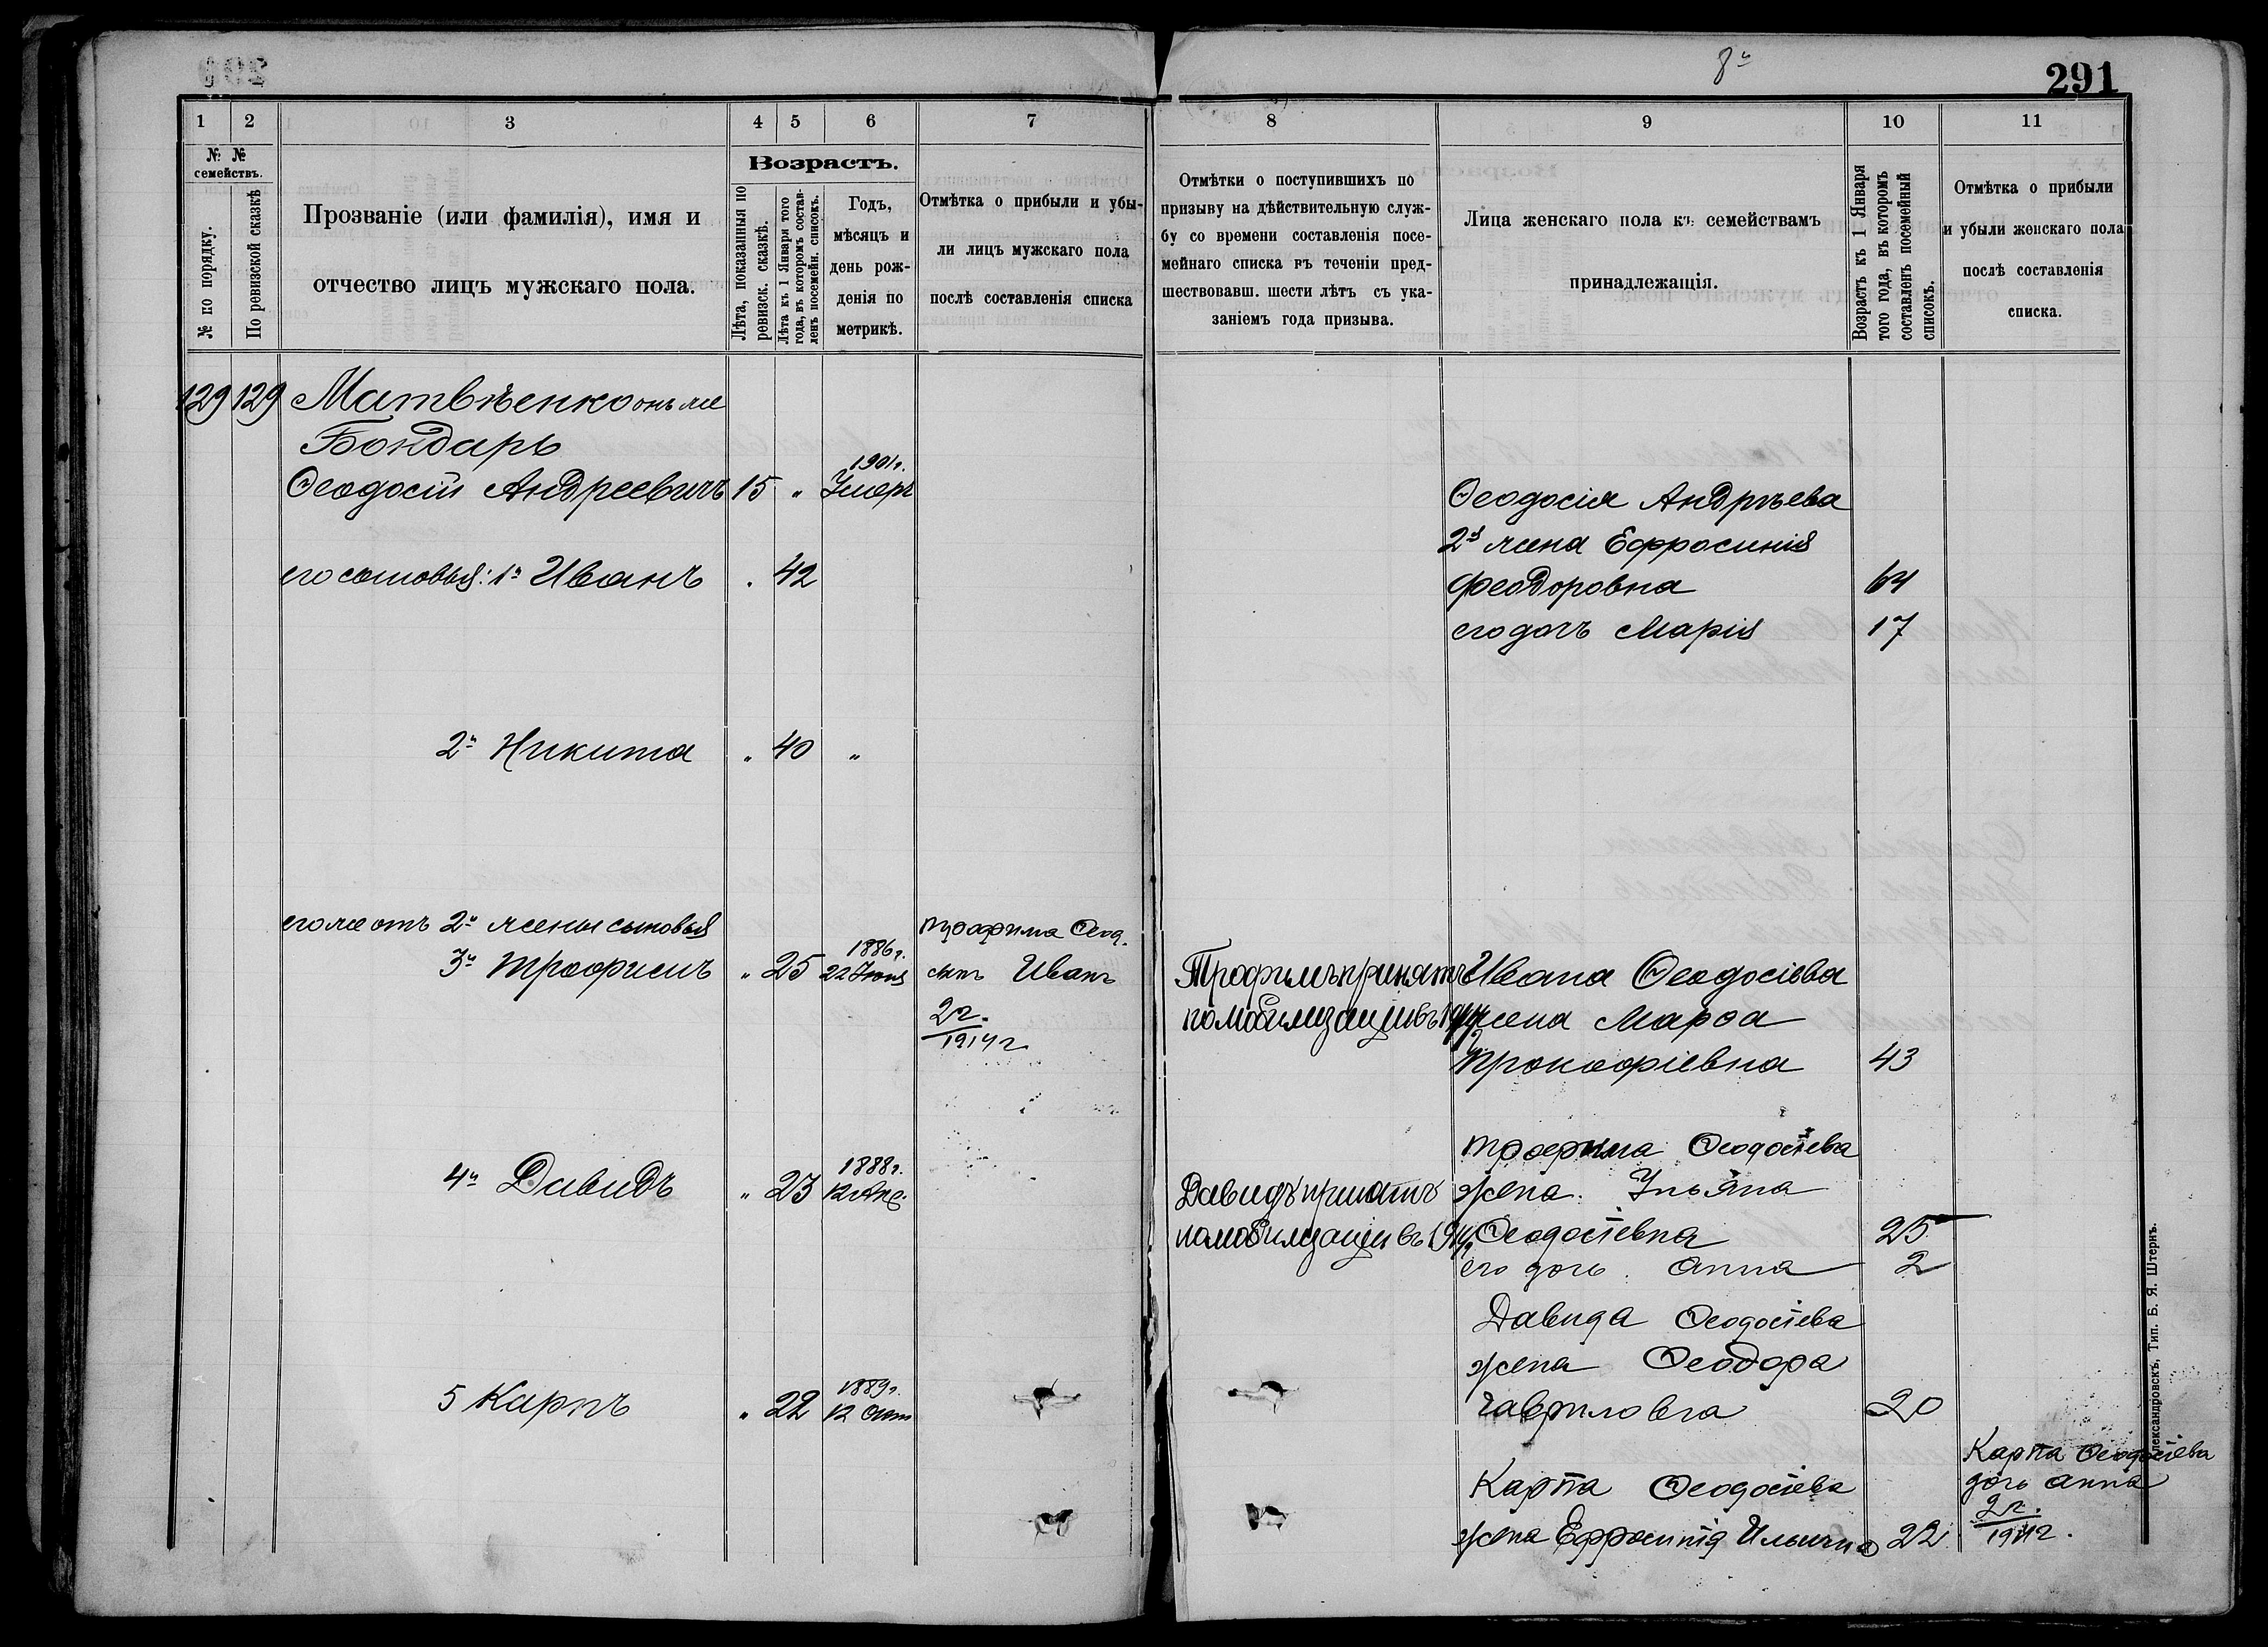 8й
291
1 2 3 4 5 6 7
№ № семействъ.
№ по порядку.
По ревизской сказкѣ
Прозваніе (или фамилія), имя и
отчество лицъ мужскаго пола.
Возрастъ.
Лѣта, показанныя по
ревизск. сказкѣ.
Лѣта къ 1 Января того
года, въ которомъ состав-
ленъ посемейн. списокъ.
Годъ,
мѣсяцъ и
день рож-
денія по
метрикѣ.
Отмѣтка о прибыли и убы-
ли лицъ мужскаго пола
послѣ составленія списка
129 129 Матвѣенко онъ же
Бондарь
1901г.
Ѳеодосій Андреевичъ 15 „ Умеръ
его сыновья: 1й Иванъ „ 42
2й Никита „ 40 „
его же отъ 2й жены сыновья
3й Трофимъ „ 25 1886г.
22 Іюня
Трофима Ѳеод.
сынъ Иванъ
2г.
1914г
4й Давидъ „ 23 1888г.
12 Апр.
5 Карпъ „ 22 1889г.
12 Окт
8 9 10 11
Отмѣтки о поступившихъ по
призыву на дѣйствительную служ-
бу со времени составленія посе-
мейнаго списка въ теченіи пред-
шествовавш. шести лѣтъ съ ука-
заніемъ года призыва.
Лица женскаго пола къ семействамъ
принадлежащія.
Возрастъ къ 1 Января
того года, въ которомъ
составленъ посемейный
списокъ.
Отмѣтка о прибыли
и убыли женскаго пола
послѣ составленія
списка.
Ѳеодосія Андрѣева
2я жена Ефросинія
Феодоровна 64
его дочъ Марія 17
Трофимъ принятъ
по мобилизаціи въ 1914г
Ивана Ѳеодосіева
жена Марѳа
Прокофіевна 43
Трофима Ѳеодосіева
жена Ульяна
Ѳеодосіевна 25
его дочь Анна 2
Давидъ принятъ
по мобилизаціи въ 1914г
Давида Ѳеодосіева
жена Ѳеодора
Гавриловна 20
Карпа Ѳеодосіева
жена Ефросинія Ильична 22
Карпа Ѳеодосіева
дочь Анна
2г.
1914г.
Александровскъ, Тип. Б. Я. Штернъ.